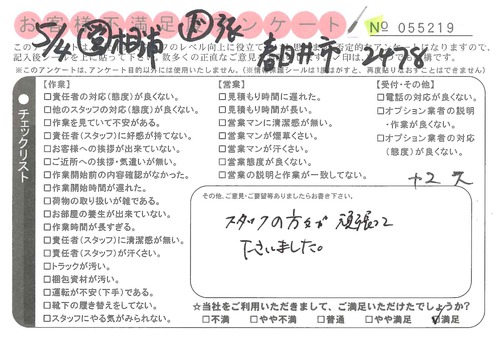 お客様不満足アンケート
№ 055219
5/4
相浦
張
春日井市
2478
記入後シールを上に貼って下さい。
(※個人情報保護シールは1回はがすと、再度貼りなおすことはできません)
※このアンケートは、アンケート目的以外には使用いたしません。
●チェックリスト
【作業】
□責任者の対応(態度)が良くない。
□他のスタッフの対応(態度)が良くない。
□作業を見ていて不安がある。
□責任者(スタッフ)に好感が持てない。
□お客様への挨拶が出来ていない。
□ご近所への挨拶・気遣いが無い。
□作業開始前の内容確認がなかった。
□作業開始時間が遅れた。
□荷物の取り扱いが雑である。
□お部屋の養生が出来ていない。
□作業時間が長すぎる。
□責任者(スタッフ)に清潔感が無い。
□責任者(スタッフ)が汗くさい。
□トラックが汚い。
□梱包資材が汚い。
□運転が不安(下手)である。
□靴下の履き替えをしてない。
□スタッフにやる気がみられない。
【営業】
□見積もり時間に遅れた。
□見積もり時間が長い。
□営業マンに清潔感が無い。
□営業マンが煙草くさい。
□営業マンが汗くさい。
□営業態度が良くない。
□営業の説明と作業が一致してない。
【受付・その他】
□電話の対応が良くない。
□オプション業者の説明
・作業が良くない。
□オプション業者の対応
(態度)が良くない。
その他、ご意見・ご要望等ありましたらお書き下さい。
スタッフの方々が頑張って
下さいました。
☆当社をご利用いただきまして、ご満足いただけたでしょうか?
□不満 □やや不満 □普通 □やや満足 ☑満足